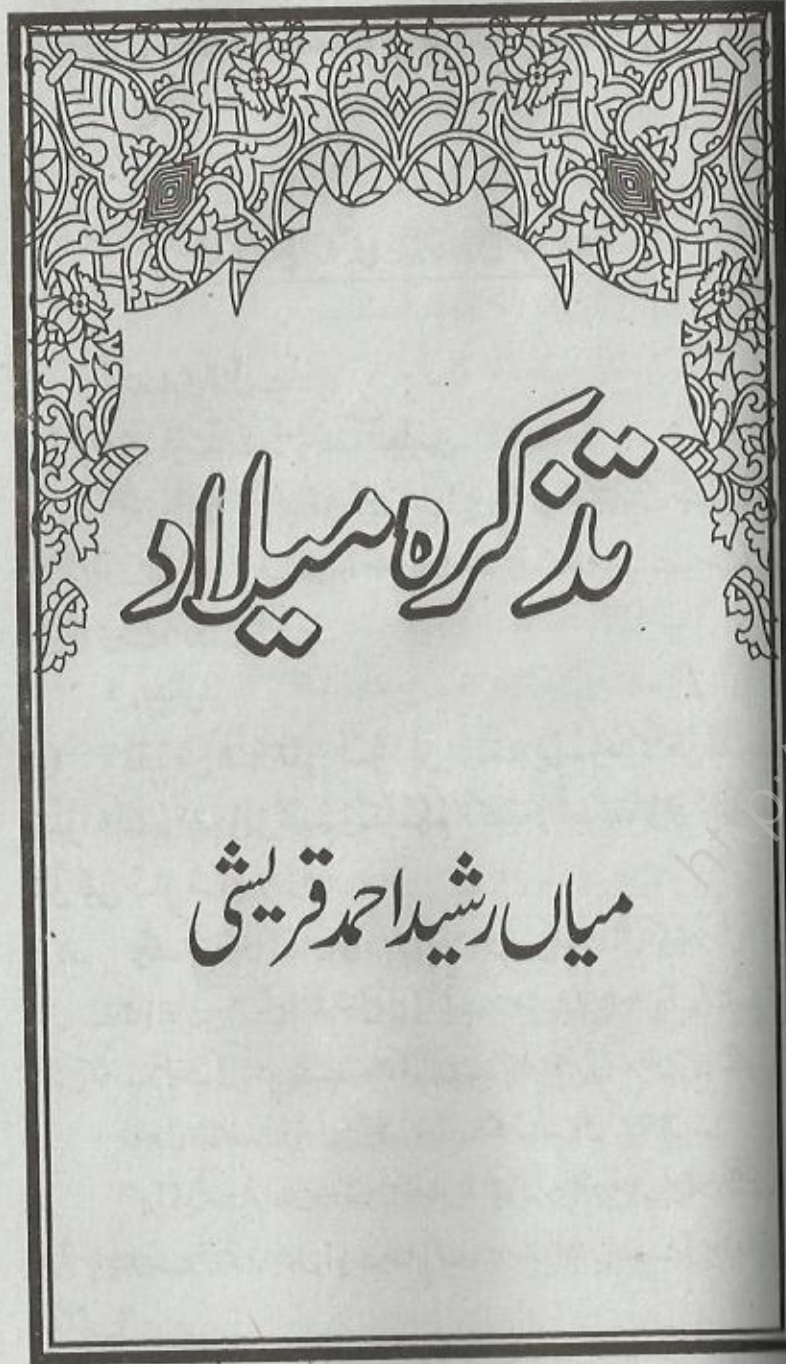 تذکرہ میلاد
میاں رشید احمد قریشی
http:/